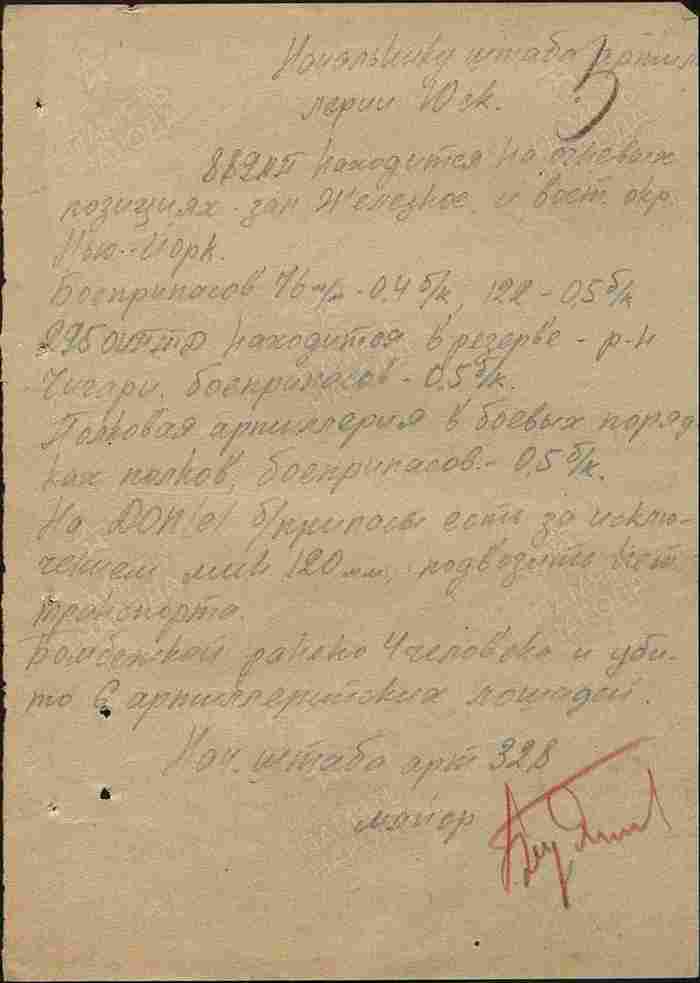 Начальнику штаба артил
лерии 10 ск.
5
889 АП находится на огневых
позициях зап Железное и вост. окр.
Нью-Йорк.
Боеприпасов 76 м/м - 0,4 б/к, 122 - 0,5 б/к
295 ОИПТД находится в резерве - р-н
Чигари, боеприпасов - 0,5 б/к.
Полковая артиллерия в боевых поряд
ках полков, боеприпасов - 0,5 б/к.
На ДОП'е б/припасы есть за исклю-
чением мин 120 мм, подвозить нет
транспорта.
Бомбежкой ранено 4 человека и уби-
то 6 артиллерийских лошадей.
Нач. штаба арт 328
майор